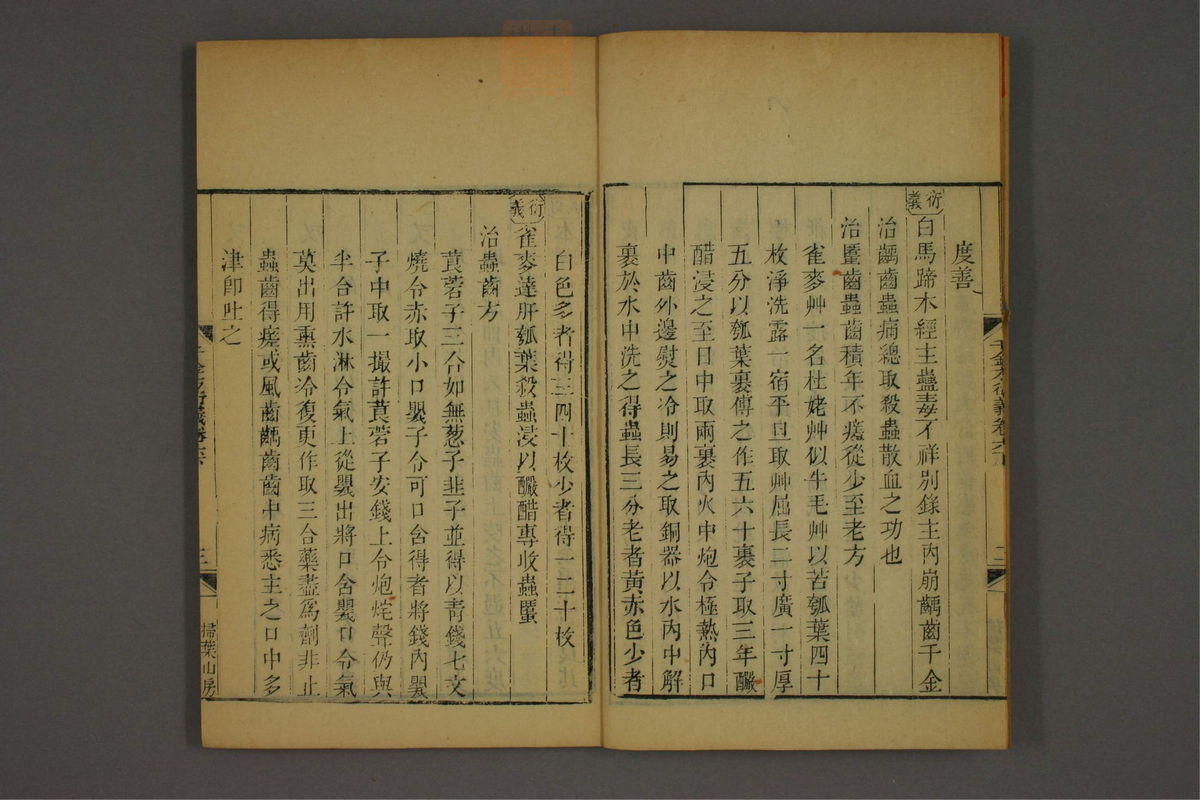 度善
衍義
白馬蹄本經主蠱毒不祥別錄主內崩齲齒千金
治齲齒蟲痛總取殺蟲散血之功也
治䘌齒蟲齒積年不瘥從少至老方
雀麥艸一名杜姥艸似牛毛艸以苦瓠葉四十
枚淨洗露一宿平旦取艸屈長二寸廣一寸厚
五分以瓠葉裹傅之作五六十裹子取三年釅
醋浸之至日中取兩裹內火中炮令極熱內口
中齒外邊熨之冷則易之取銅器以水內中解
裹於水中洗之得蟲長三分老者黃赤色少者
白色多者得三四十枚少者得一二十枚
衍義
雀麥達肝瓠葉殺蟲浸以釅醋專收蟲䘌
治蟲齒方
莨菪子三合如無蔥子韭子並得以青錢七文
燒令赤取小口甖子令可口含得者將錢內甖
子中取一撮許莨菪子安錢上令炮烢聲仍與
半合許水淋令氣上從甖出將口含甖口令氣
莫出用熏齒冷復更作取三合藥盡為劑非止
蟲齒得瘥或風齒齲齒齒中病悉主之口中多
津即吐之
三
掃葉山房